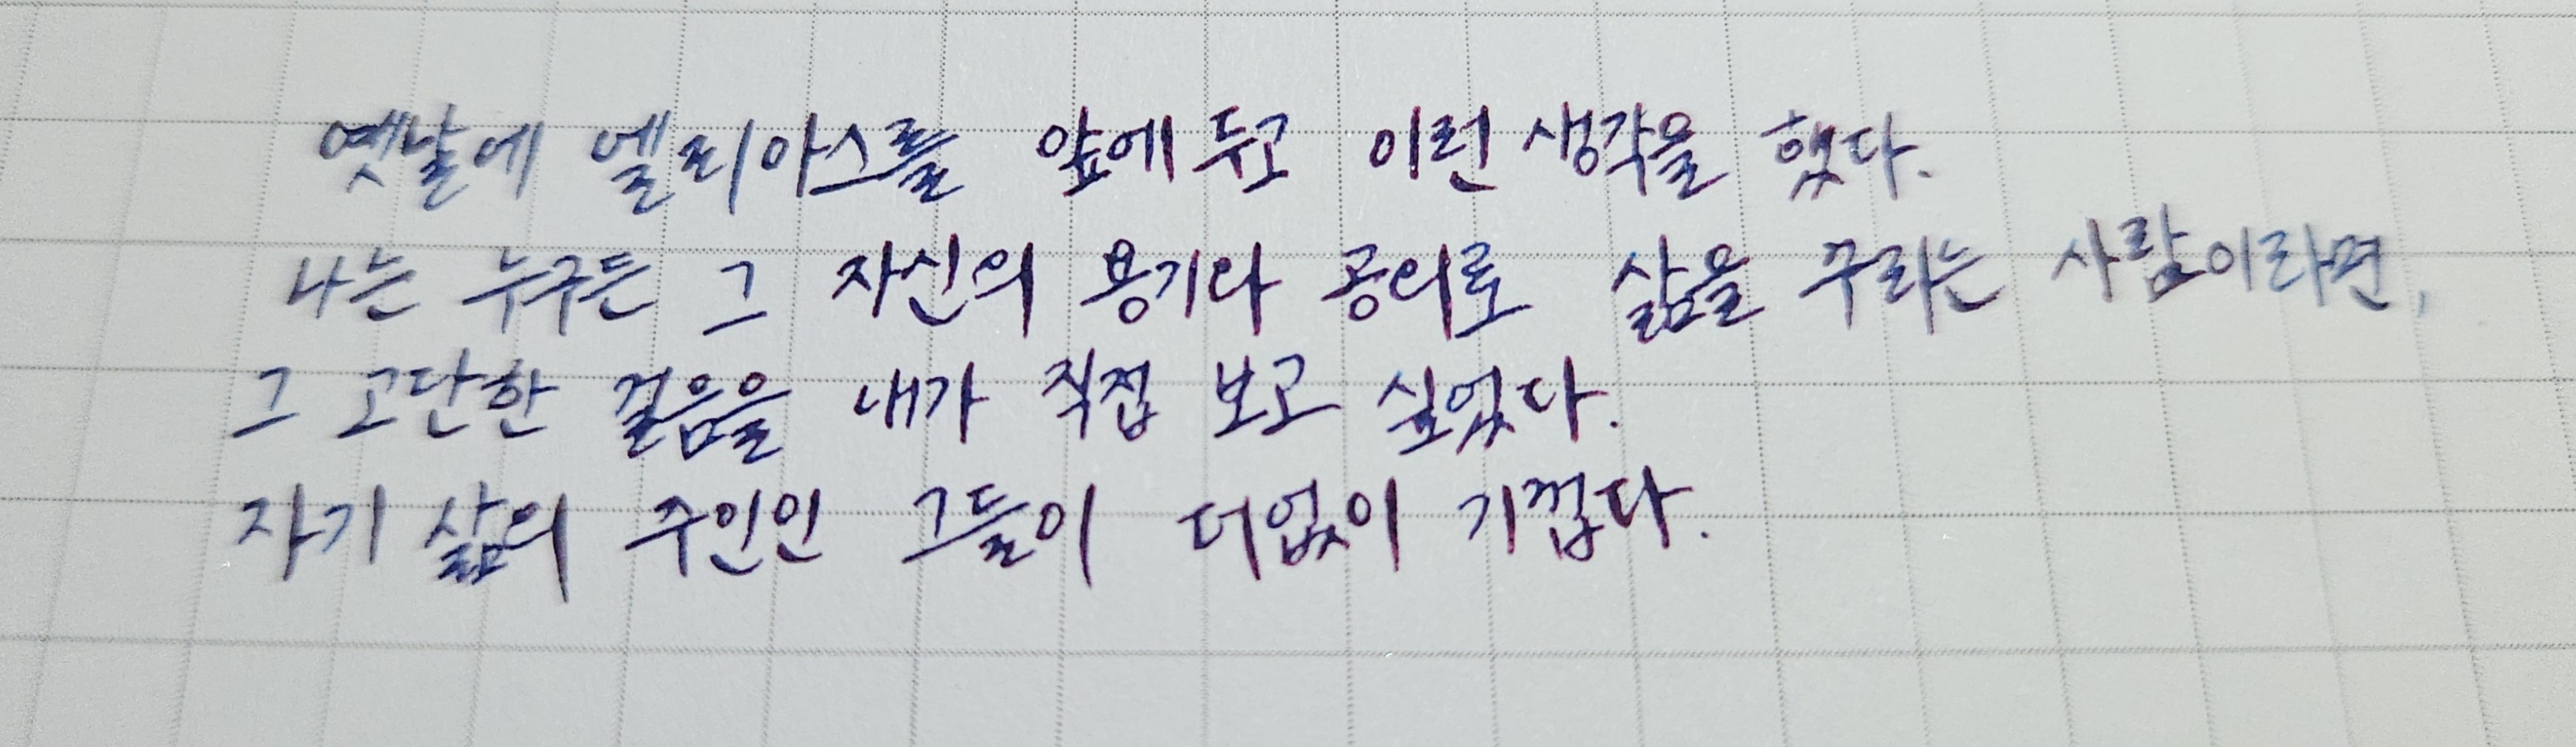 옛날에 엘리아스를 앞에 두고 이런 생각을 했다.
나는 누구든 그 자신의 용기와 공의로 삶을 꾸리는 사람이라면,
그 고단한 걸음을 내가 직접 보고 싶었다.
자기 삶의 주인인 그들이 더없이 기껍다.